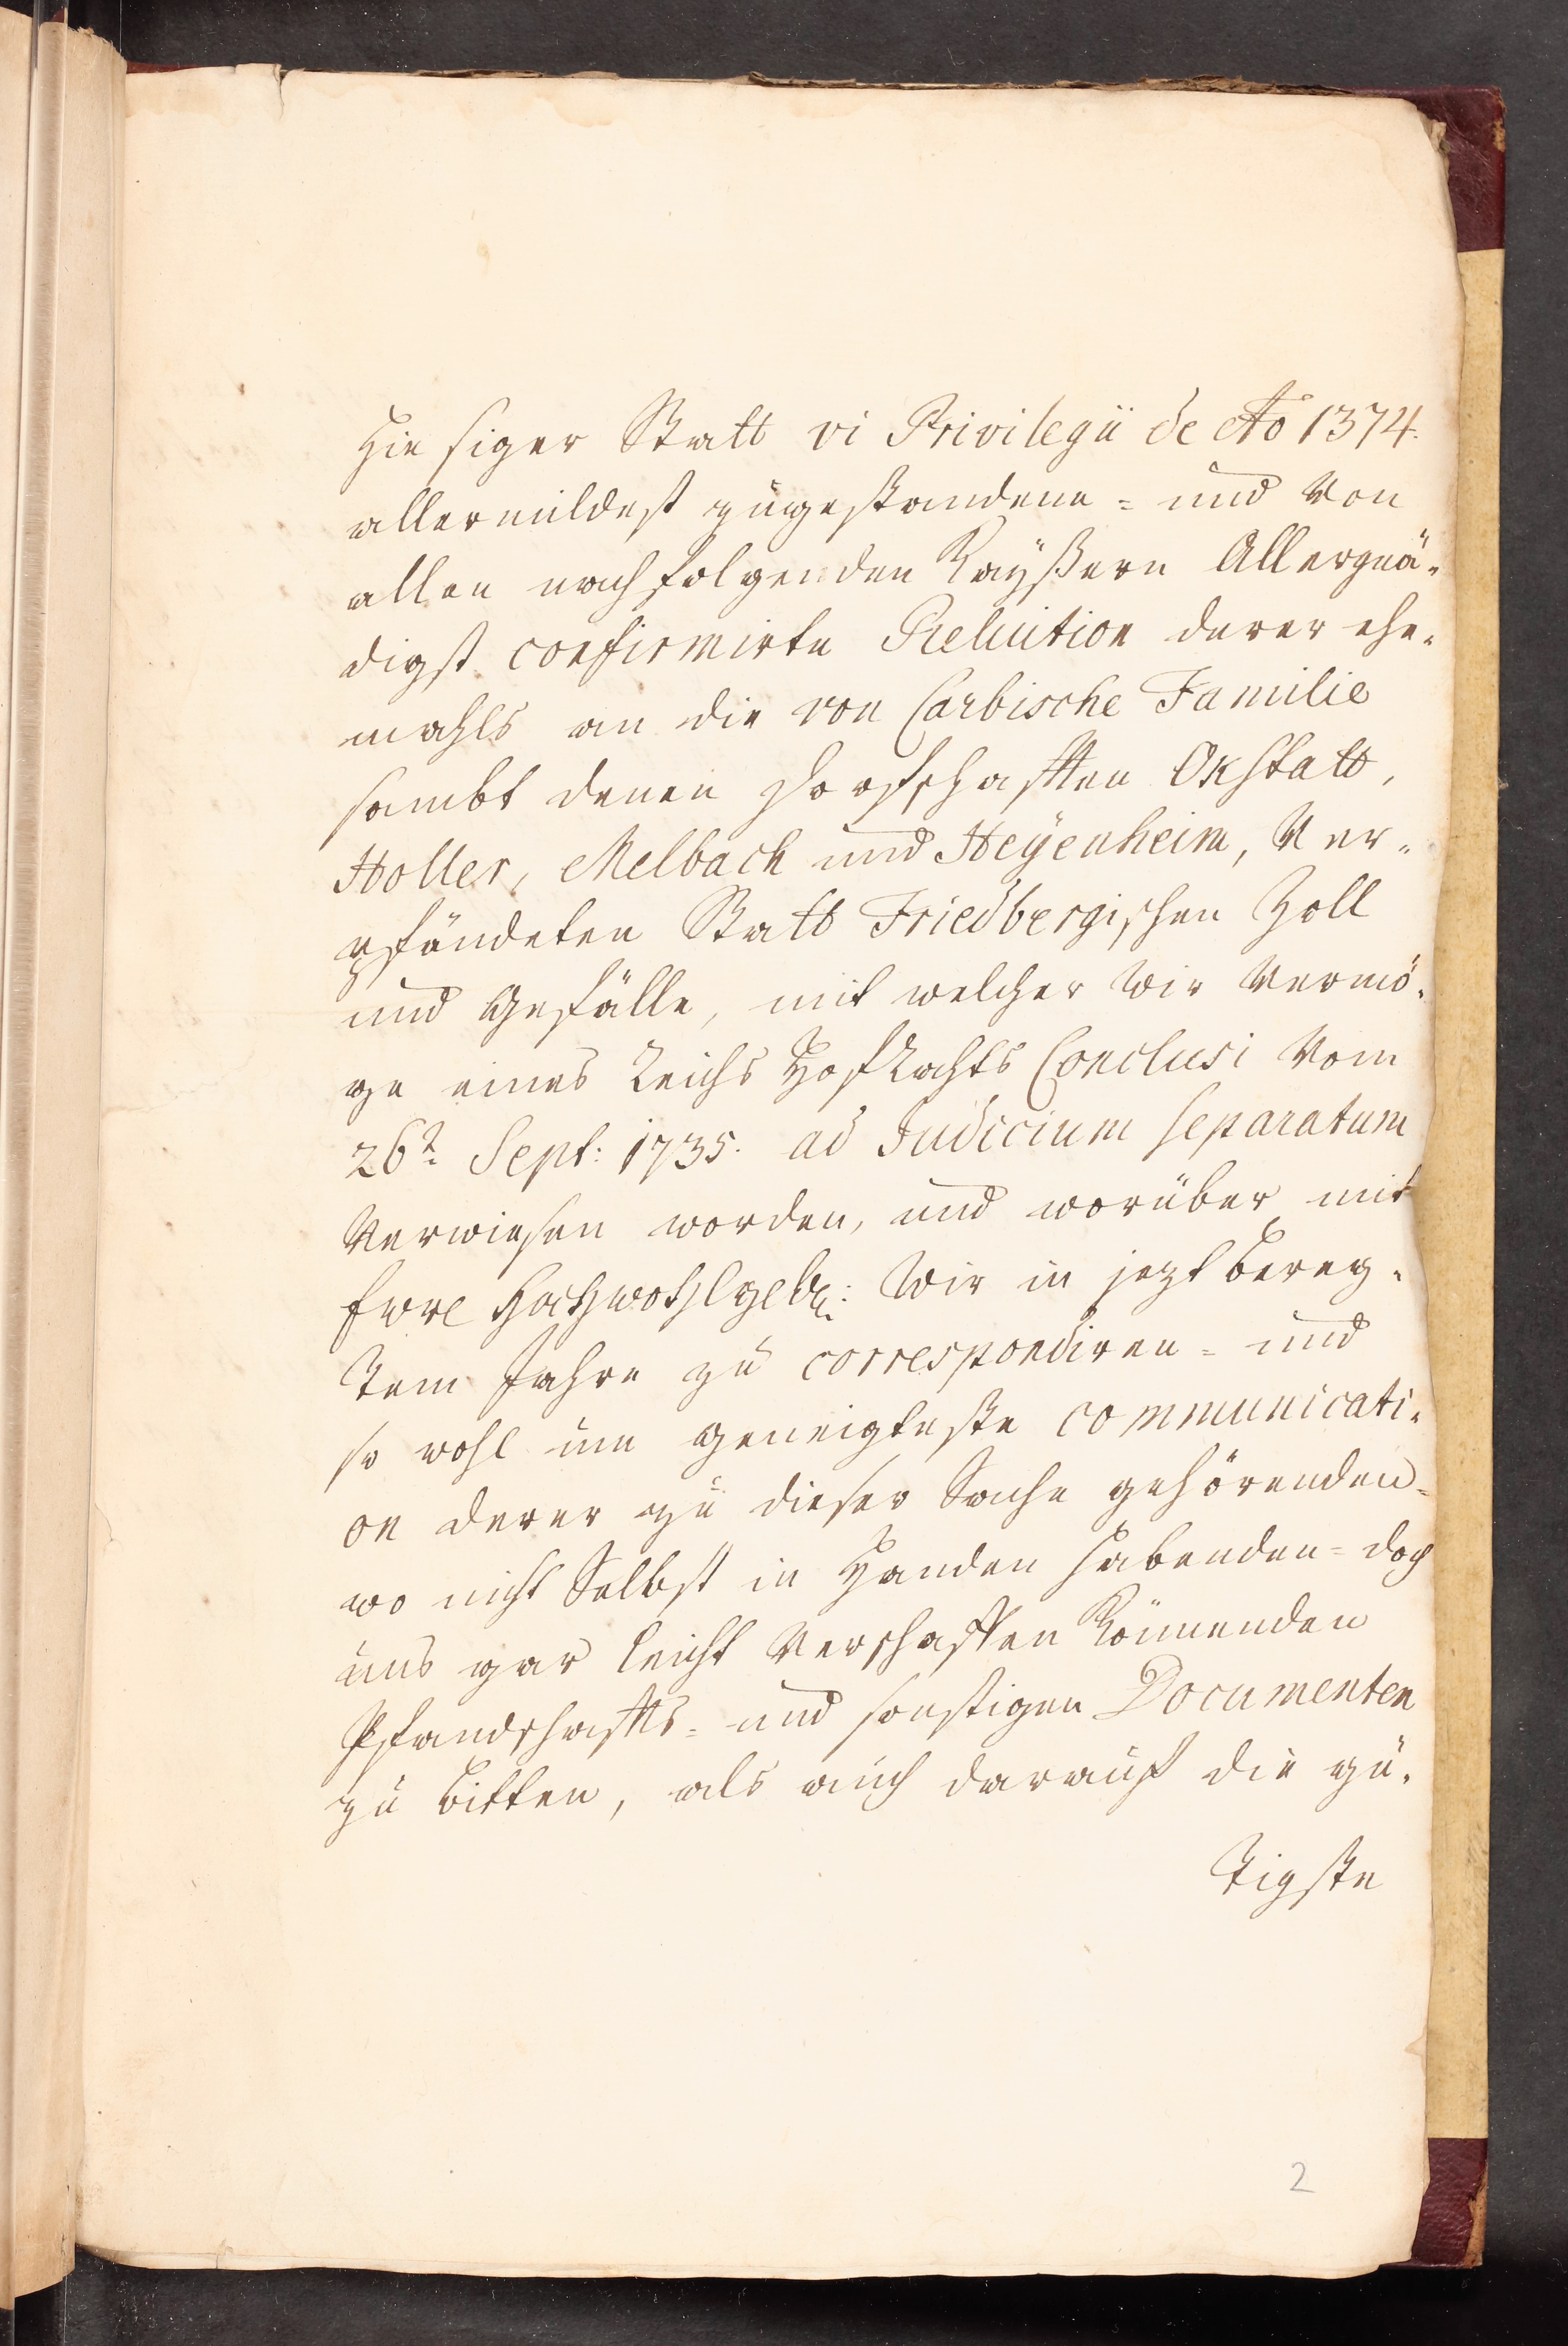 Hiesiger Statt vi Privilegii de Ao 1374.
allermildest zugestandene = und von
allen nachfolgenden Kayßern Allergnä-
digst confirmirte Reluition derer ehe-
mahls an die von Carbische Familie
sambt denen Dorfschafften Okstatt,
Holler, Melbach und Heÿenheim, Ver-
pfändeten Statt Friedbergischen Zoll
und Gefälle, mit welcher wir vermö-
ge eines Reichs HofRahts Conclusi vom
26t. Sept: 1735. ad Judicium separatum
verwiesen worden, und worüber mit
Ewre Hochwohlgeb: wir in jezt bereg-
tem Jahre zu correspondiren = und
so wohl um geneigteste communicati-
on derer zu dieser Sache gehörenden =
wo nicht Selbst in Handen habenden = doch
uns gar leicht verschaffen könnenden
Pfandschaffts = und sonstigen Documenten
zu bitten, als auch darauf die gü-
tigste
2